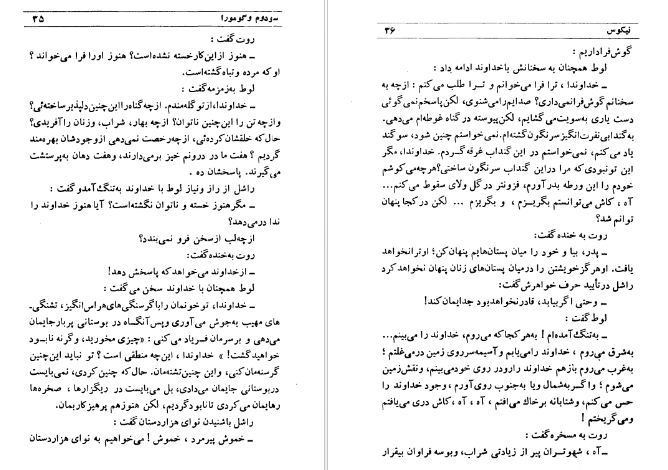 سودوم و گومورا ۳۵
روت گفت:
ــ هنوز از این کار خسته نشده‌است؟ هنوز او را فرا می‌خواند؟
او که مرده و تباه گشته‌است.
لوط به زمزمه گفت:
ــ خداوندا، از تو گله‌مندم. از چه گناه را این‌چنین دلپذیر ساخته‌ئی؟
و از چه تن را این‌چنین ناتوان؟ از چه بهار، شراب، و زنان را آفریدی؟
حال که خلقشان کرده‌ئی، از چه رخصت نمی‌دهی از وجودشان بهره‌مند
گردیم؟ هفت ما در درونم خیز برمی‌دارند، و هفت دهان به پرستشت
می‌گیرند. پاسخشان ده.
راشل از راز و نیاز لوط با خداوند به‌تنگ آمد و گفت:
ــ مگر هنوز خسته و ناتوان نگشته‌است؟ آیا هنوز خداوند را
ندا درمی‌دهد؟
از چه لب از سخن فرو نمی‌بندد؟
ــ از خداوند می‌خواهد که پاسخش دهد!
لوط همچنان با خداوند سخن می‌گفت:
ــ خداوندا، تو خونمان را با گرسنگی‌های هراس‌انگیز، تشنگی‌ـ
های مهیب به‌جوش می‌آوری و پس‌آنگاه در بوستانی پربار جایمان
می‌دهی و بر سرمان فریاد می‌کنی: «چیزی مخورید، وگرنه نابود
خواهید گشت!» خداوندا، این چه منطقی است؟ تو نباید این‌چنین
گرسنه‌مان کنی، و این چنین تشنه‌مان. حال که چنین کردی، نمی‌بایست
در بوستانی جایمان می‌دادی، بل می‌بایست در ریگزارها، صخره‌ها
رهایمان می‌کردی تا نابود گردیم، لکن هنوز هم پرهیزکار بمان.
راشل باشنیدن نوای هزاردستان گفت:
ــ خموش پیرمرد، خموش! می‌خواهیم به نوای هزاردستان
نیکوس ۳۶
گوش فراداریم:
لوط همچنان به سخنانش با خداوند ادامه داد:
ــ خداوندا، ترا فرا می‌خوانم و ترا طلب می‌کنم: از چه به
سخنانم گوش فرانمی‌داری؟ صدایم را می‌شنوی، لکن پاسخم نمی‌گوئی
دست یاری به‌سویت می‌گشایم، لکن پیوسته در گناه غوطه‌ام می‌دهی.
به گندابی نفرت‌انگیز سرنگون گشته‌ام. نمی‌خواستم چنین شود، سوگند
یاد می‌کنم، نمی‌خواستم در این گنداب غرقه گردم. خداوندا، مگر
این تو نبودی که مرا در این گنداب سرنگون ساختی؟ هرچه می‌کوشم
خودم را این ورطه بدر آورم، فزونتر در گل ولای سقوط می‌کنم...
آه، کاش می‌توانستم بگریزم، و بگریزم ... لکن در کجا پنهان
توانم شد؟
روت به خنده گفت:
ــ پدر، بیا و خود را میان پستان‌هایم پنهان کن؛ او ترا نخواهد
یافت. او هرگز خویشتن را درمیان پستان‌های زنان پنهان نخواهد کرد
راشل در تأیید حرف خواهرش گفت:
ــ وحتی اگر بیابد، قادر نخواهد بود جدایمان کند!
لوط گفت:
ــ به‌تنگ آمده‌ام! به هر کجا که می‌روم، خداوند را می‌بینم...
به‌شرق می‌روم، خداوند را می‌یابم و آسیمه‌سر روی زمین درمی‌غلتم؛
به‌غرب می‌روم بازهم خداوند را رودر روی خود می‌بینم، و نقش زمین
می‌شوم؛ واگر به‌شمال ویا به‌جنوب روی آورم، وجود خداوند را
حس می‌کنم، وشتابانه برخاک می‌افتم، آه، آه، کاش دری می‌یافتم
ومی‌گریختم!
روت به مسخره گفت:
ــ آه، شهوتران پیر از زیادتی شراب، وبوسه فراوان بیقرار